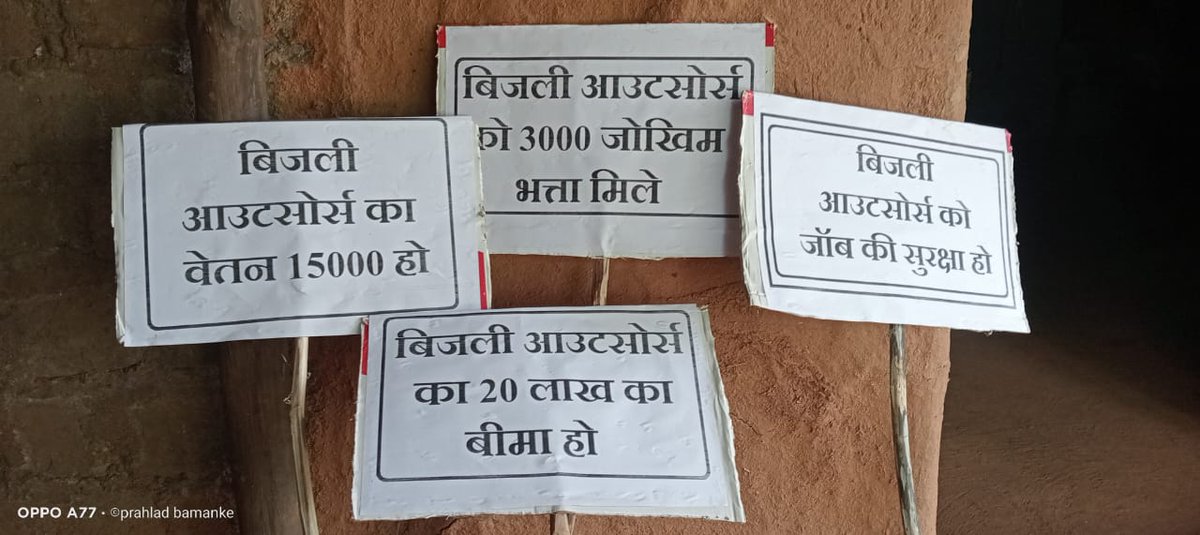 बिजली आउटसोर्स
को 3000 जोखिम
भत्ता मिले
बिजली
आउटसोर्स का
वेतन 15000 हो
बिजली
आउटसोर्स को
जॉब की सुरक्षा हो
बिजली आउटसोर्स
का 20 लाख का
बीमा हो
OPPO A77 · ©prahlad bamanke